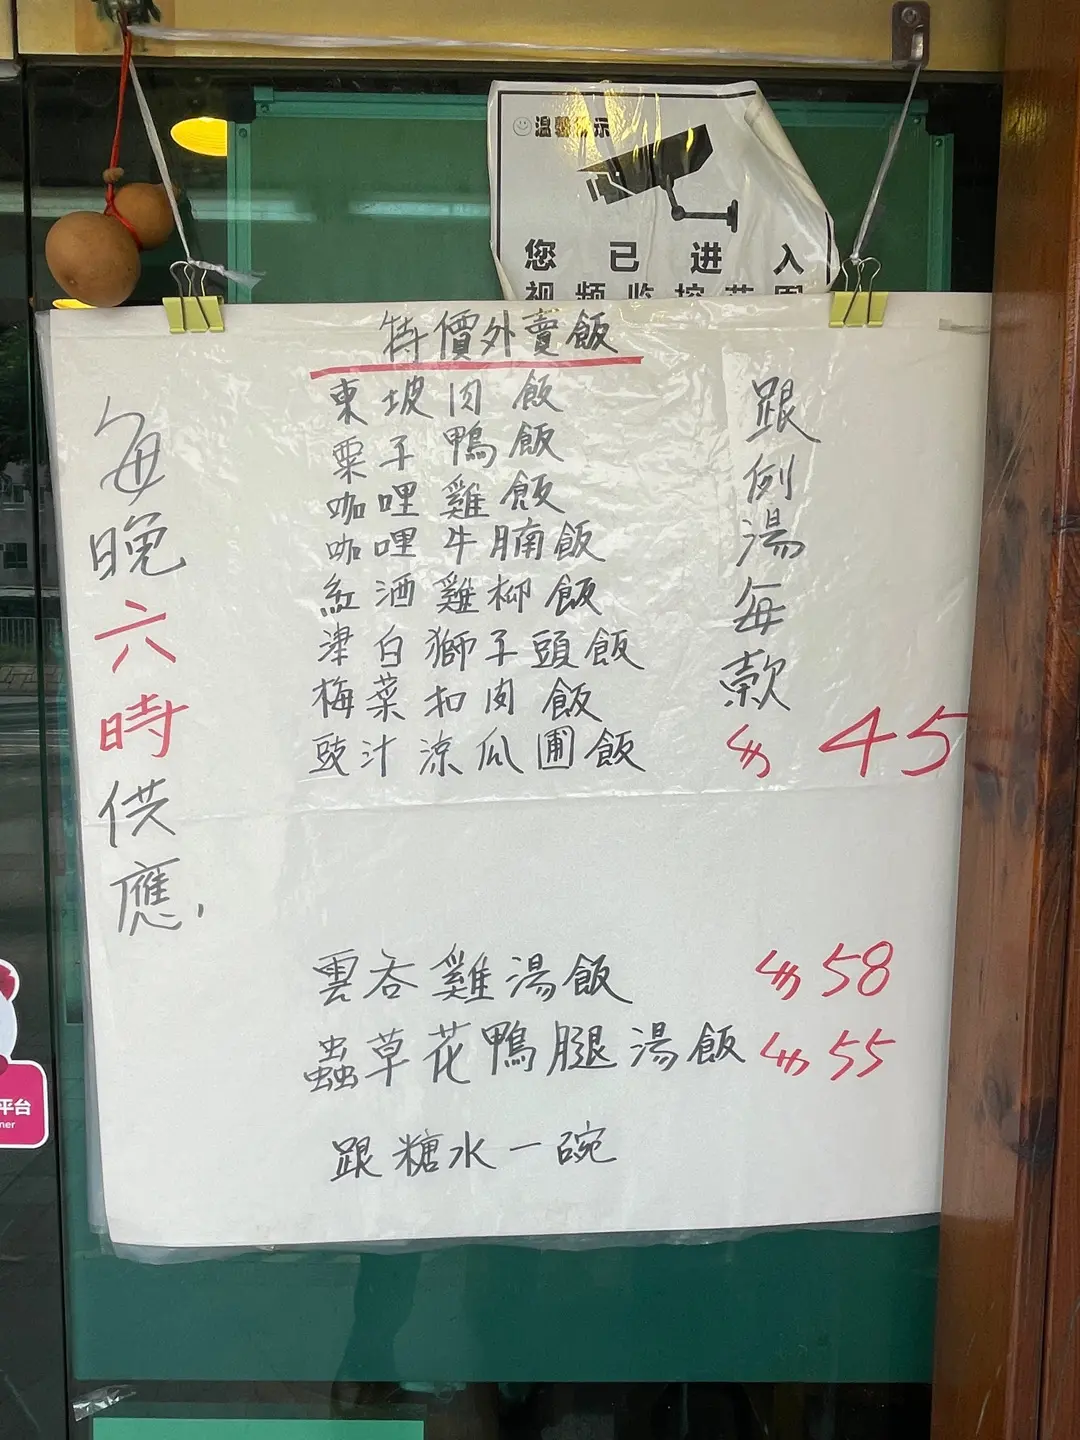 温馨提示
您已进入
视频监控范围
特價外賣飯
東坡肉飯
粟子鴨飯
咖哩雞飯
咖哩牛腩飯
紅酒雞柳飯
津白獅子頭飯
梅菜扣肉飯
豉汁涼瓜圃飯
跟例湯每款
45
每晚六時供應
雲吞雞湯飯
58
蟲草花鴨腿湯飯
55
跟糖水一碗
平台
ner